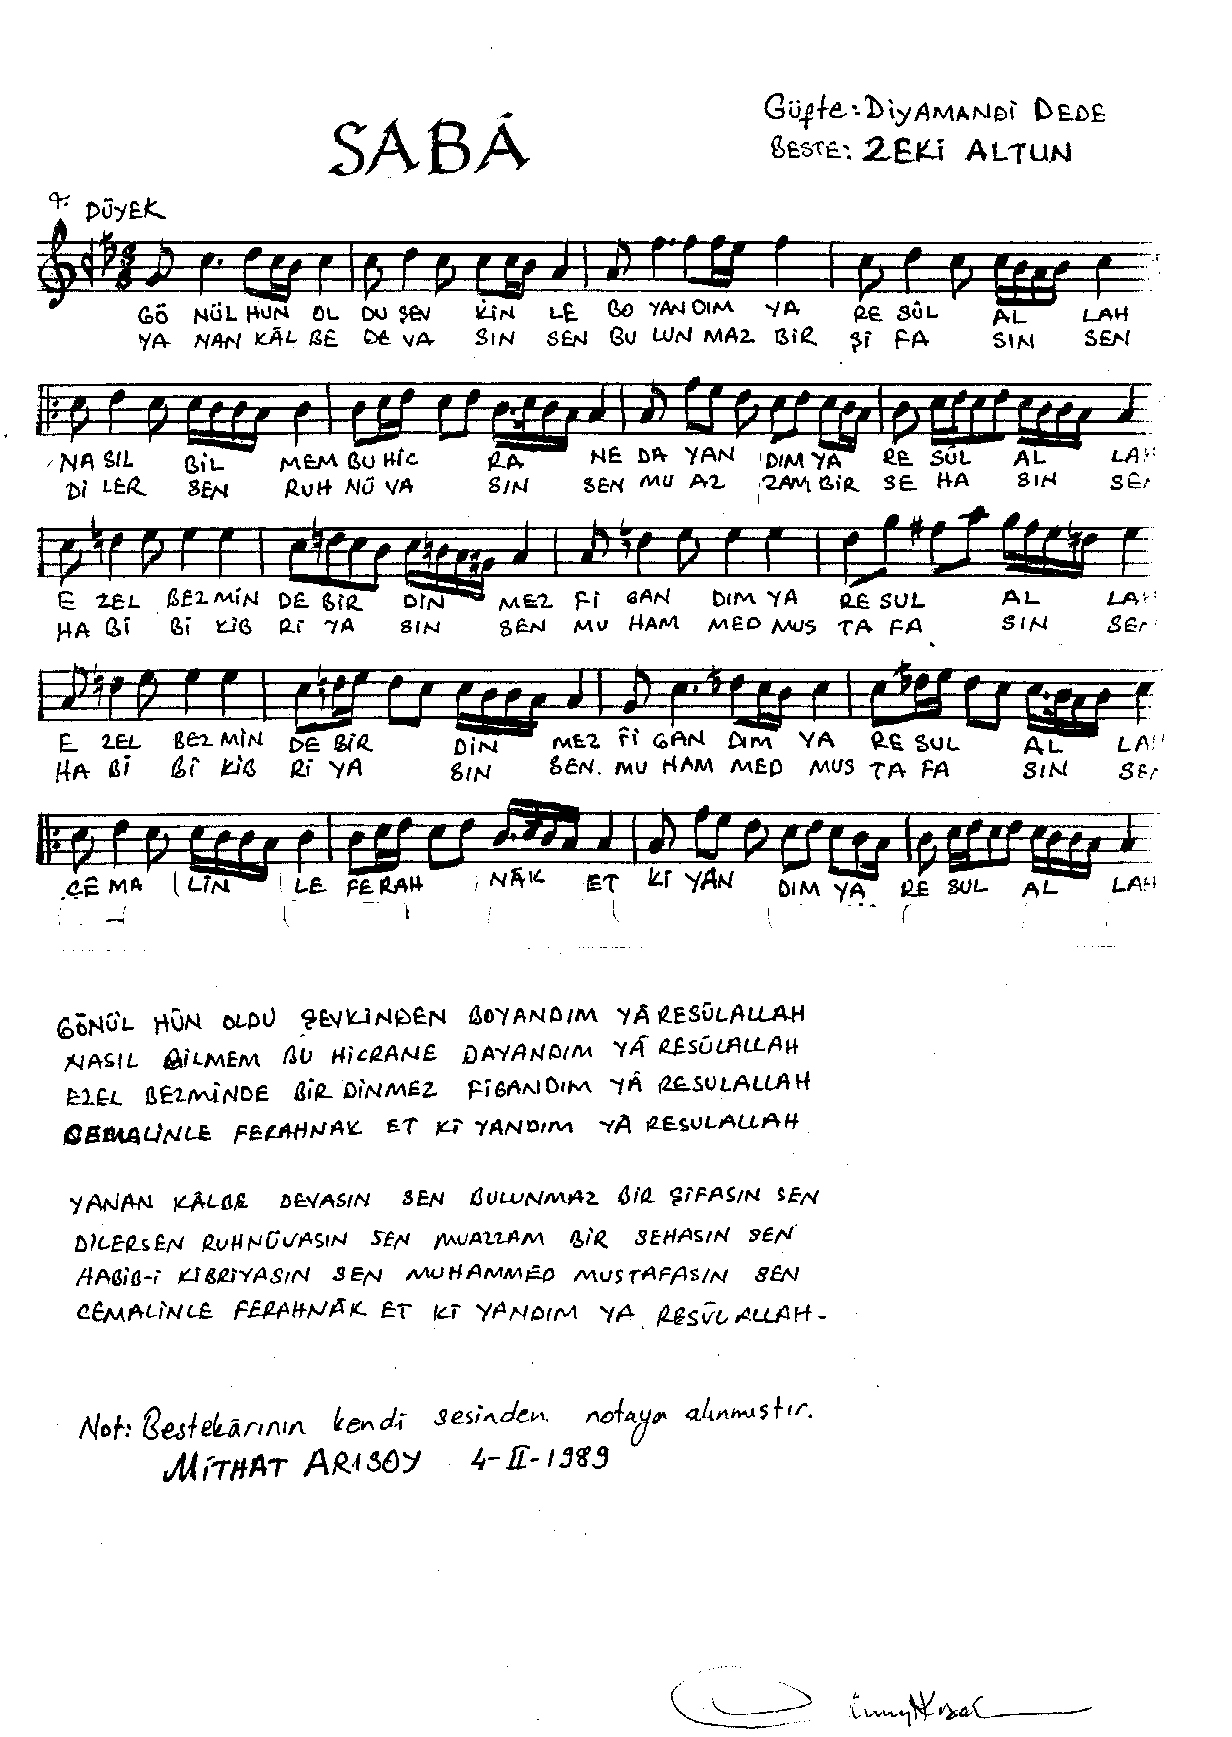 Güfte: DİYAMANDİ DEDE
SABÂ
BESTE: ZEKİ ALTUN
DÜYEK
GÖ NÜL HUN OL DU ŞEV KİN LE BO YAN DIM YA RE SÛL AL LAH
YA NAN KÂL BE DE VA SIN SEN BU LUN MAZ BİR Şİ FA SIN SEN
NA SIL BİL MEM BU HİC RA NE DA YAN DIM YA RE SÛL AL LAH
Dİ LER SEN RUH NÜ VA SIN SEN MU AZ ZAM BİR SE HA SIN SEN
E ZEL BEZ MİN DE BİR DİN MEZ Fİ GAN DIM YA RE SUL AL LAH
HA Bİ Bİ KİB Rİ YA SIN SEN MU HAM MED MUS TA FA SIN SEN
E ZEL BEZ MİN DE BİR DİN MEZ Fİ GAN DIM YA RE SUL AL LAH
HA Bİ Bİ KİB Rİ YA SIN SEN. MU HAM MED MUS TA FA SIN SEN
CE MA LİN LE FERAH NÂK ET Kİ YAN DIM YA RE SUL AL LAH
GÖNÜL HÛN OLDU ŞEVKİNDEN BOYANDIM YÂ RESÛLALLAH
NASIL BİLMEM BU HİCRANE DAYANDIM YÂ RESÛLALLAH
EZEL BEZMİNDE BİR DİNMEZ FİGANDIM YÂ RESULALLAH
CEMALİNLE FERAHNAK ET Kİ YANDIM YÂ RESULALLAH
YANAN KÂLBE DEVASIN SEN BULUNMAZ BİR ŞİFASIN SEN
DİLERSEN RUHNÜVASIN SEN MUAZZAM BİR SEHASIN SEN
HABİB-İ KİBRİYASIN SEN MUHAMMED MUSTAFASIN SEN
CEMALİNLE FERAHNÂK ET Kİ YANDIM YA RESÛLALLAH-
Not: Bestekârının kendi sesinden notaya alınmıştır.
MİTHAT ARISOY 4-II-1989